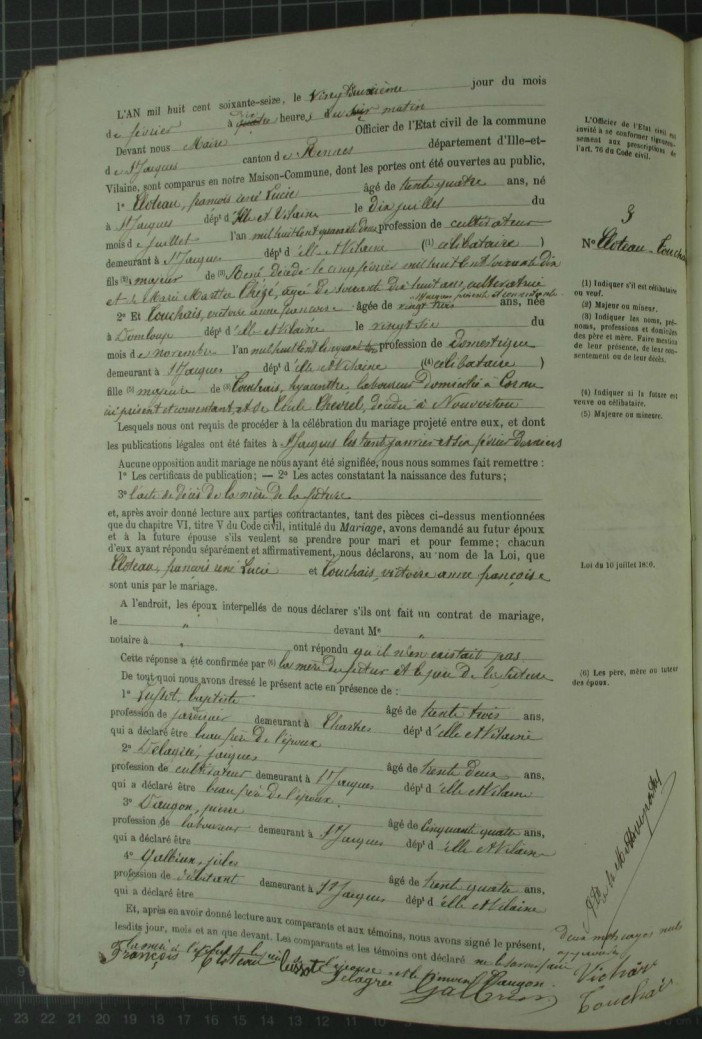 L'AN mil huit cent soixante-seize, le Vingt deuxième jour du mois
de février à dix heures du matin
Devant nous Maire Officier de l'Etat civil de la commune
de St Jacques canton de Rennes département d'Ille-et-
Vilaine, sont comparus en notre Maison-Commune, dont les portes ont été ouvertes au public,
1° Cloteau, françois rené Lucie âgé de trente quatre ans, né
à St Jacques dépt d'Ille et Vilaine le dix juillet du
mois de juillet l'an mil huit cent quarante profession de cultivateur
demeurant à St Jacques dépt d'ille et Vilaine ((1) célibataire )
fils (2) majeur de (3) René, décédé le cinq février mil huit cent soixante dix
et de Marie Marthe âgée de soixante dix huit ans, cultivatrice
2° Et Touchais, victoire anne françoise âgée de vingt trois ans, née
à Domloup dépt d'ille et Vilaine le vingt six du
mois de novembre l'an mil huit cent cinquante profession de Domestique
demeurant à St Jacques dépt d'ille et Vilaine ((4) célibataire )
fille (5) majeure de (3) Touchais, hyacinthe laboureur domicilié à
ici présent et consentant, et de Cécile décédée à Nouvoitou
Lesquels nous ont requis de procéder à la célébration du mariage projeté entre eux, et dont
les publications légales ont été faites à St Jacques les trente janvier et six février derniers
Aucune opposition audit mariage ne nous ayant été signifiée, nous nous sommes fait remettre :
1° Les certificats de publication; — 2° Les actes constatant la naissance des futurs;
3° l'acte de décès de la mère de la future
et, après avoir donné lecture aux parties contractantes, tant des pièces ci-dessus mentionnées
que du chapitre VI, titre V du Code civil, intitulé du Mariage, avons demandé au futur époux
et à la future épouse s'ils veulent se prendre pour mari et pour femme; chacun
d'eux ayant répondu séparément et affirmativement, nous déclarons, au nom de la Loi, que
Cloteau, françois rené Lucie et Touchais, victoire anne françoise
sont unis par le mariage.
A l'endroit, les époux interpellés de nous déclarer s'ils ont fait un contrat de mariage,
le " devant Me "
notaire à " ont répondu qu'il n'en existait pas
Cette réponse a été confirmée par (6) la mère du futur et le père de la future
De tout quoi nous avons dressé le présent acte en présence de :
1° Lussot, baptiste âgé de trente trois ans,
profession de demeurant à Chartres dépt d'ille et Vilaine
qui a déclaré être beau frère de l'époux
2° Delagrée, jacques âgé de trente deux ans,
profession de cultivateur demeurant à St Jacques dépt d'ille et Vilaine
qui a déclaré être beau frère de l'époux.
3° Daugon, pierre âgé de cinquante quatre ans,
profession de laboureur demeurant à St Jacques dépt d'ille et Vilaine
qui a déclaré être
4° Galbrun, jules âgé de trente quatre ans,
profession de débitant demeurant à St Jacques dépt d'ille et Vilaine
qui a déclaré être
Et, après en avoir donné lecture aux comparants et aux témoins, nous avons signé le présent,
lesdits jour, mois et an que devant. Les comparants et les témoins ont déclaré ne le savoir faire
François Cloteau Lussot Delagrée Galbrun
L'Officier de l'Etat civil est
invité à se conformer rigoureu-
sement aux prescriptions de
l'art. 76 du Code civil.
3
N° Cloteau - Touchais
(1) Indiquer s'il est célibataire
ou veuf.
(2) Majeur ou mineur.
(3) Indiquer les noms, pré-
noms, professions et domiciles
des père et mère. Faire mention
de leur présence, de leur con-
sentement ou de leur décès.
(4) Indiquer si la future est
veuve ou célibataire.
(5) Majeure ou mineure.
Loi du 10 juillet 1850.
(6) Les père, mère ou tuteur
des époux.
deux mots rayés nuls